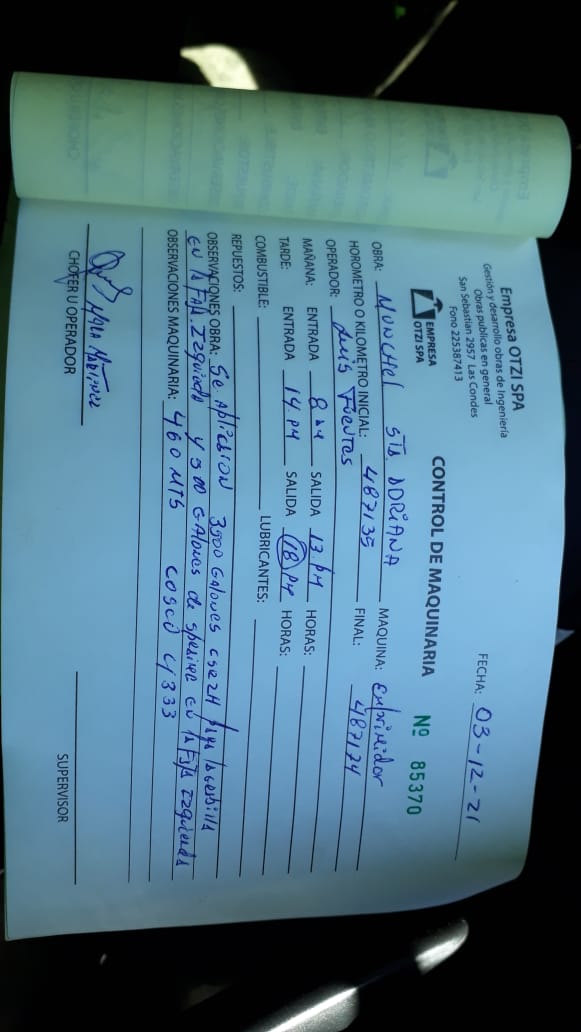 Empresa OTZI SPA
Gestión y desarrollo obras de Ingeniería
Obras publicas en general
San Sebastian 2957 Las Condes
Fono 225387413
EMPRESA
OTZI SPA
FECHA: 03-12-21
CONTROL DE MAQUINARIA
Nº 85370
OBRA: MUNCHEl STA. ADRIANA MAQUINA: Enprimidor
HOROMETRO O KILOMETRO INICIAL: 487135 FINAL: 487174
OPERADOR: Luis Fuentes
MAÑANA: ENTRADA 8 AM SALIDA 13 PM HORAS:
TARDE: ENTRADA 14 PM SALIDA 18 PM HORAS:
COMBUSTIBLE: LUBRICANTES:
REPUESTOS:
OBSERVACIONES OBRA: Se Aplicaron 3500 Galones para
EN la FAJA Izquierda y 500 GAlones de EN la FAJA Izquierda
OBSERVACIONES MAQUINARIA: 460 MTS 4333
MARTINEZ
CHOFER U OPERADOR
SUPERVISOR